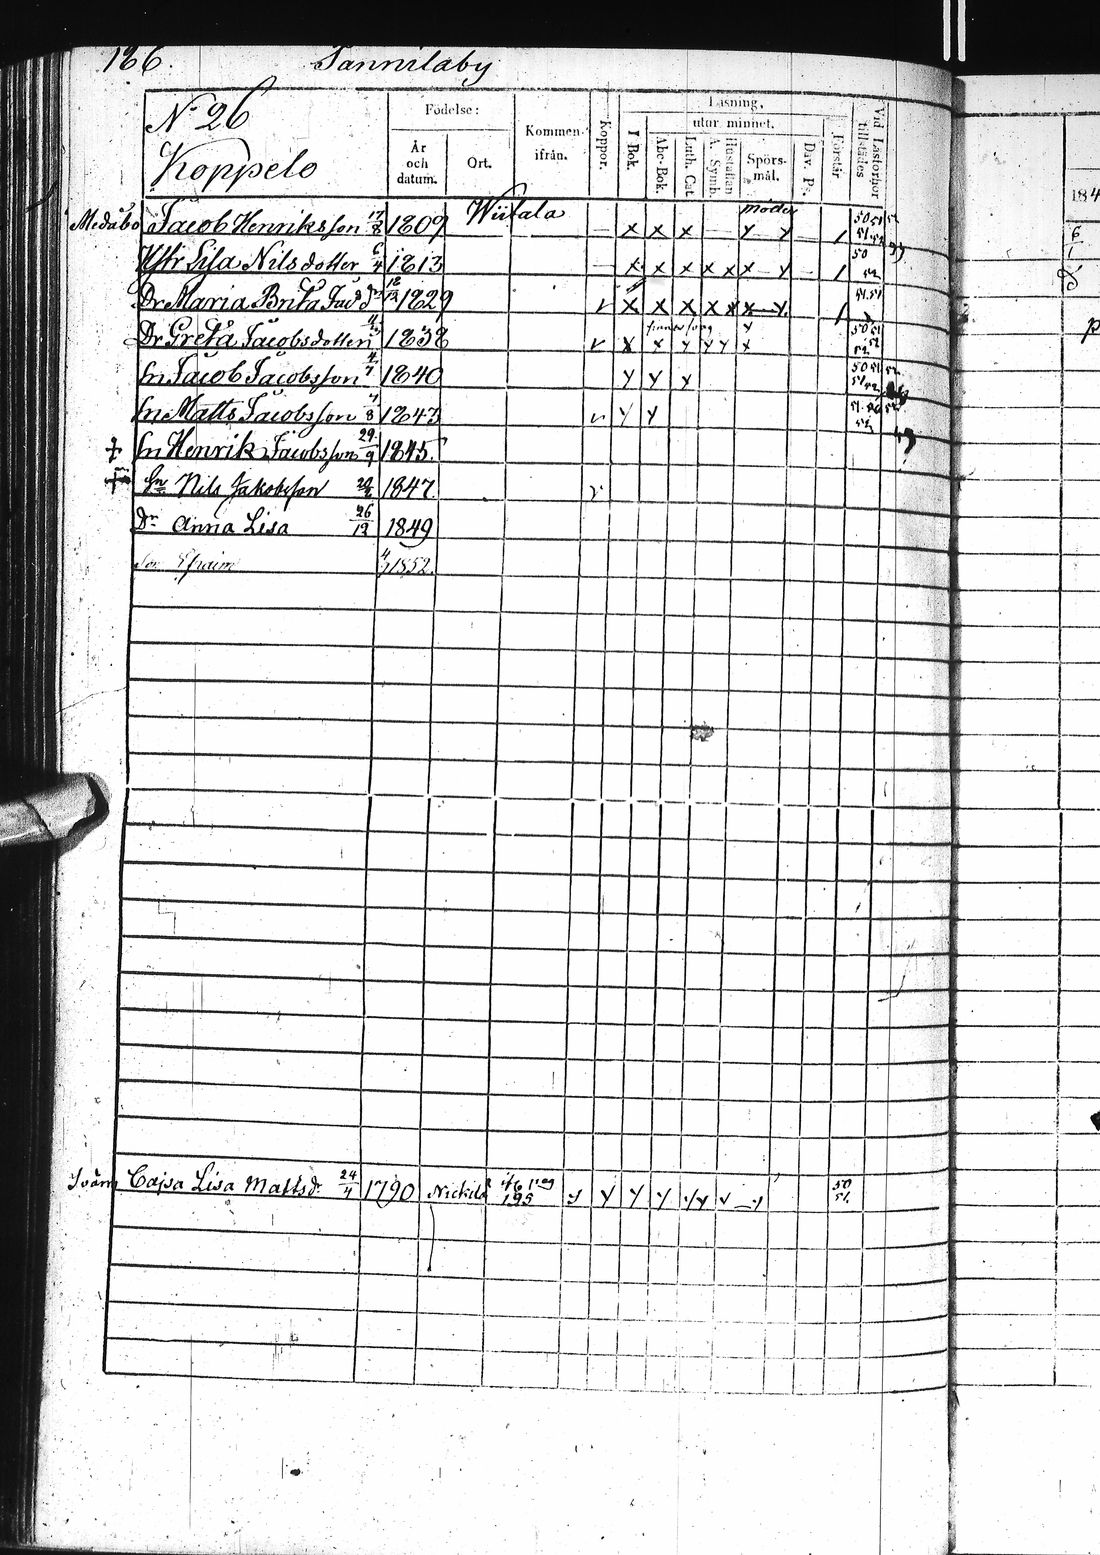 166. Tannilaby
N 26
Koppelo
Födelse:
År och datum.
Ort.
Kommen ifrån.
Koppor.
Läsning,
utur minnet.
I Bok.
Abc-Bok.
Luth. Cat.
A. Symb.
Hustaflan
Spörs-mål.
Dav. Ps.
Förstår
Vid Läsförhör tillstädes
184
Medåbo Jacob Henriksson 17/8 1809 Wiitala — x x x — x y — 1 50 51 52
Hstr Lisa Nilsdotter 6/4 1813 — x x x x x x y — 1 50 52
Dr Maria Brita Jac dr 12/12 1829 v x x x x x x x 1 51
Dr Greta Jacobsdotter 1838 v x x y y y x 50 51 52
Sn Jacob Jacobsson 4/7 1840 y y y 50 51 52
Sn Matts Jacobsson 1843 v y y
+ Sn Henrik Jacobsson 29/9 1845.
+ Sn Nils Jakobsson 1847. v
Dr Anna Lisa 26/12 1849
Son Efraim 1852.
Cajsa Lisa Mattsdr 24/4 1790 Nickila 195 y y y y y y v — y 50 51